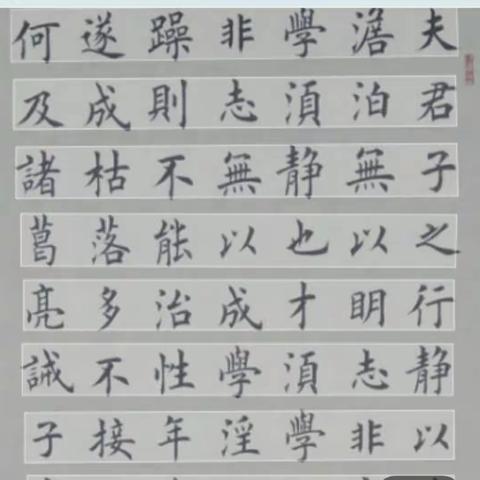 夫君子之行静以
澹泊無以眀志非
學湏静也才湏學
非志無以成學淫
躁則不能治性年
遂成枯落多不接
何及諸葛亮誡子